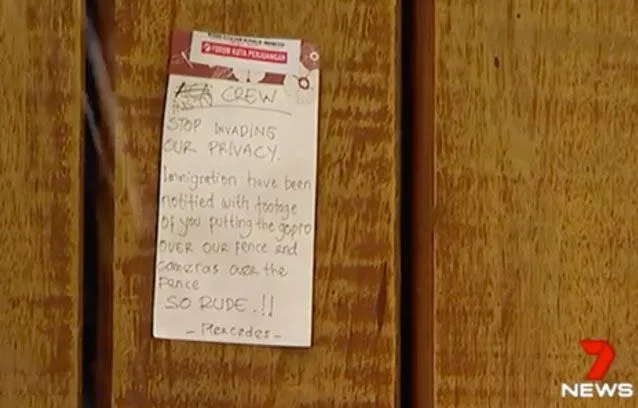 FORUM KOTA PERJUANGAN
CREW
STOP INVADING
OUR PRIVACY.
Immigration have been
notified with footage
of you putting the gopro
OVER OUR fence and
cameras over the
fence
SO RUDE.!!
- Mercedes -
7
NEWS